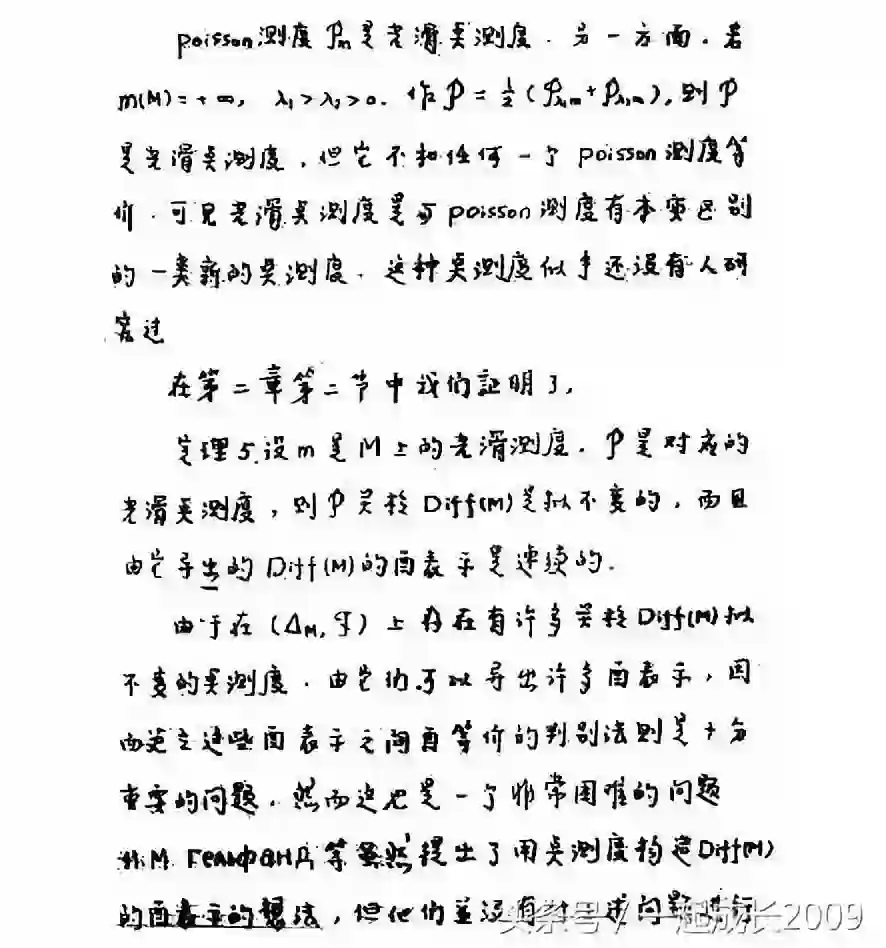 poisson测度 Pm是光滑奌测度. 另一方面. 若
m(M)=+∞, λ₁>λ₂>0. 作P=½(Pλ₁m+Pλ₂m), 则P
是光滑奌测度, 但它不和任何一个poisson测度等
价. 可见光滑奌测度是与poisson测度有本质区别
的一类新的奌测度. 这种奌测度似乎还没有人研
究过
在第二章第二节中我们証明了,
定理5.设m是M上的光滑测度. P是对应的
光滑奌测度, 则P关於Diff(M)是拟不变的, 而且
由它导出的Diff(M)的酉表示是连续的.
由于在(ΔM, 𝓕)上存在有许多关於Diff(M)拟
不变的奌测度. 由它们可以导出许多酉表示, 因
而建立这些酉表示之间酉等价的判别法则是十分
重要的问题. 然而这也是一个非常困难的问题
И.М. Гельфанд等虽然提出了用奌测度构造Diff(M)
的酉表示的想法, 但他们並没有对上述问题进行
头条号 / 一起成长2009